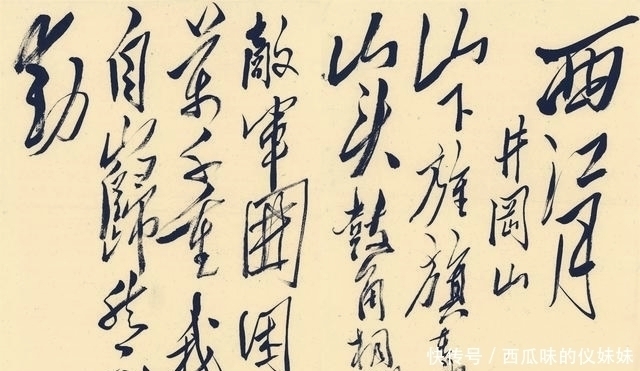 西江月
井冈山
山下旌旗在
山头鼓角相
敌军围困
万千重我
自岿然不
动
快传号／西瓜味的仪妹妹